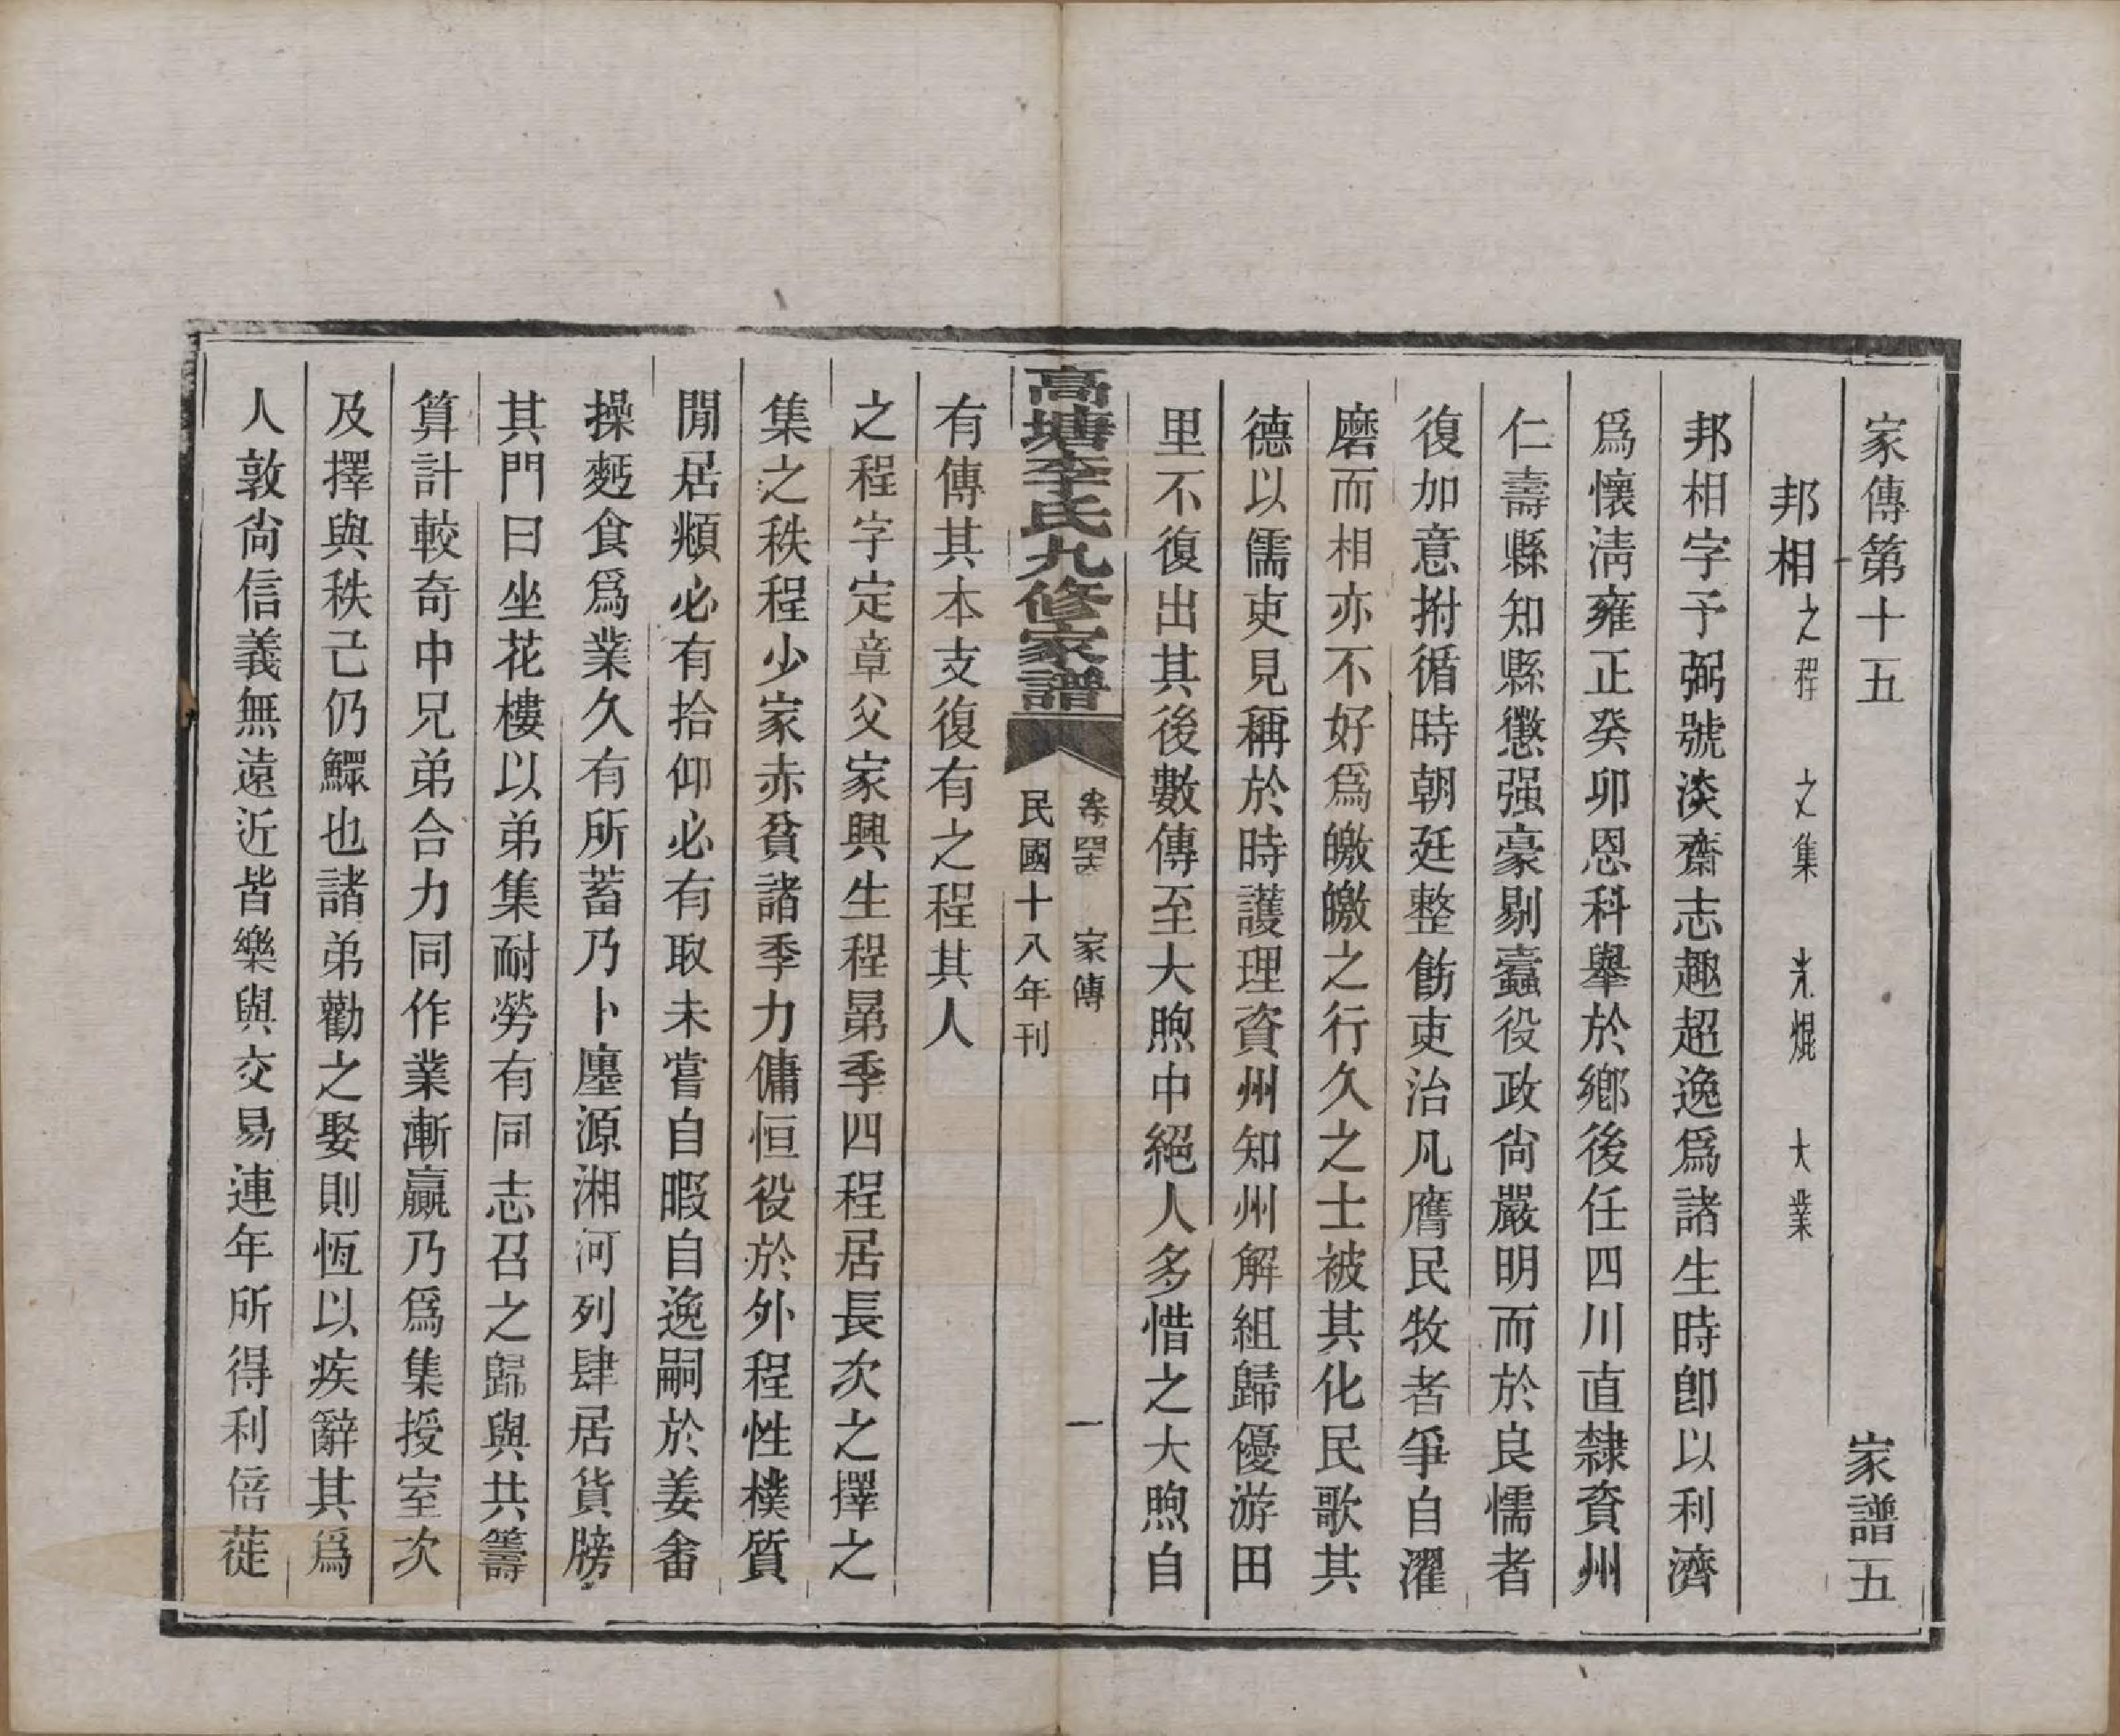 家傳第十五　家譜五
邦相　之程　之集　光焜　大業
邦相字予弼號淡齋志趣超逸爲諸生時卽以利濟
爲懷淸雍正癸卯恩科舉於鄉後任四川直隸資州
仁壽縣知縣懲强豪剔蠹役政尙嚴明而於良懦者
復加意拊循時朝廷整飭吏治凡膺民牧者爭自濯
磨而相亦不好爲皦皦之行久之士被其化民歌其
德以儒吏見稱於時護理資州知州解組歸優游田
里不復出其後數傳至大煦中絕人多惜之大煦自
高塘李氏九修家譜
卷四　家傳　一
民國十八年刊
有傳其本支復有之程其人
之程字定章父家興生程晜季四程居長次之擇之
集之秩程少家赤貧諸季力傭恒役於外程性樸質
閒居頫必有拾仰必有取未嘗自暇自逸嗣於姜畬
操麪食爲業久有所蓄乃卜廛源湘河列肆居貨牓
其門曰坐花樓以弟集耐勞有同志召之歸與共籌
算計較奇中兄弟合力同作業漸贏乃爲集授室次
及擇與秩己仍鰥也諸弟勸之娶則恆以疾辭其爲
人敦尙信義無遠近皆樂與交易連年所得利倍蓰